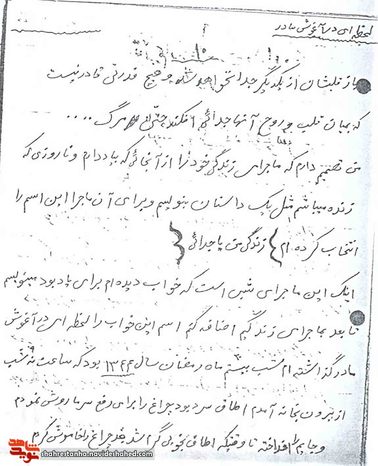 لحظه ای در آغوش مادر
باز قلبشان از یکدیگر جدا نخواهد شد و هیچ قدرتی قادر نیست
که میان قلب و روح آنها جدائی افکند حتی مرگ ....
من تصمیم دارم که ماجرای زندگی خود را از آنجائی که یاد دارم و تا روزی که
زنده میباشم مثل یک داستان بنویسم و برای آن ماجرا این اسم را
انتخاب کرده ام } زندگی من یا جدائی {
اینک این ماجرای شبی است که خواب دیده ام برای یادبود مینویسم
تا بعد بماجرای زندگیم اضافه کنم اسم این خواب را لحظه ای در آغوش
مادر گذاشته ام شب بیستم ماه رمضان سال ۱۳۴۴ بود که ساعت نه شب
از بیرون بخانه آمدم اطاق سرد بود چراغ را برای رفع سرما روشن نمودم
و جایم را انداخته تا وقتیکه اطاق بخوبی گرم شد بعد چراغ را خاموش کردم
shahrestanha.navideshahed.com